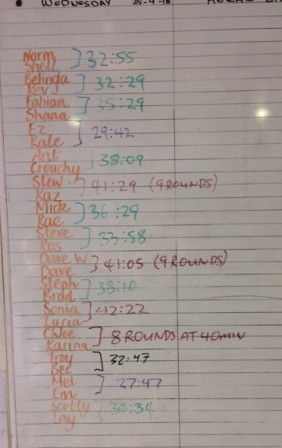 WEDNESDAY 25-4-18
Norm
Shell ] 32:55
Belinda
Kev J ] 32:29
Fabian
Shana ] 35:29
Ez
Kate ] 29:42
Ant
Crouchy ] 38:09
Stew
Kaz ] 41:29 (9 ROUNDS)
Mick
Rae ] 36:29
Steve
Ros ] 33:58
Dave W
Dave ] 41:05 (9 ROUNDS)
Steph
Brad ] 38:10
Sonia
Lucia ] 42:22
Chloe
Karina ] 8 ROUNDS AT 40MIN
Troy
Bec ] 32:47
Mel
Em ] 27:47
Scotty
] 34:34